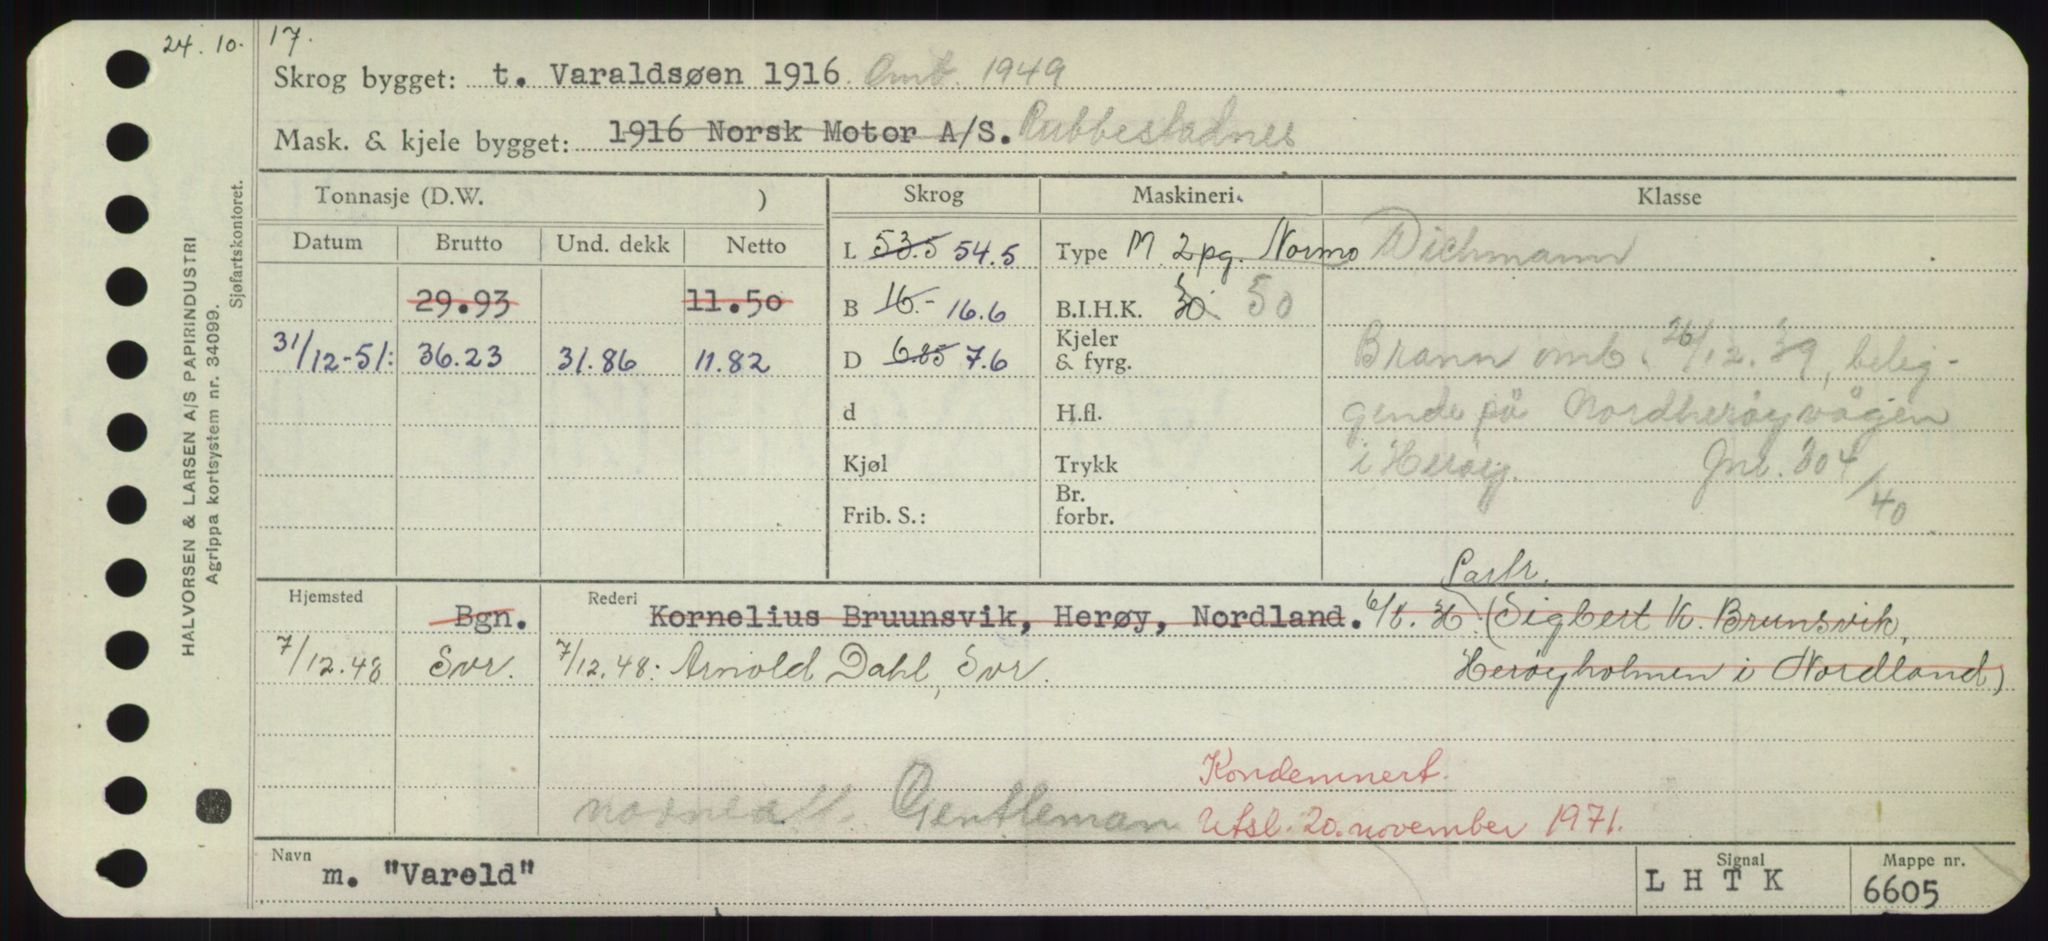 24. 10. 17.
Skrog bygget: t. Varaldsøen 1916. Omb. 1949
Mask. & kjele bygget: 1916 Norsk Motor A/S. Rubbestadnes
Tonnasje (D.W. ) Skrog Maskineri Klasse
Datum Brutto Und. dekk Netto L 53.5 54.5 Type M. 2 pg. Normo Dichmann
29.93 11.50 B 16.- 16.6 B.I.H.K. 30 50
31/12-51: 36.23 31.86 11.82 D 6.85 7.6 Kjeler & fyrg. Brann omb. 26/12.39, belig-
d H.fl. gende på Nordherøyvågen
Kjøl Trykk i Herøy. Jnl. 304/40
Frib. S.: Br. forbr.
Hjemsted Bgn. Rederi Kornelius Bruunsvik, Herøy, Nordland. Partr. (Sigbert K. Brunsvik,
7/12.48 Svr. 7/12.48: Arnold Dahl, Svr. Herøyholmen i Nordland)
Kondemnert.
Gentleman Utsl. 20. november 1971.
Navn m. "Vareld" Signal L H T K Mappe nr. 6605
HALVORSEN & LARSEN A/S PAPIRINDUSTRI
Agrippa kortsystem nr. 34099.
Sjøfartskontoret.